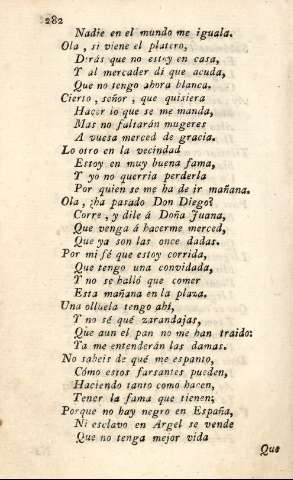 282
Nadie en el mundo me iguala.
Ola, si viene el platero,
Dirás que no estoy en casa,
Y al mercader di que acuda,
Que no tengo ahora blanca.
Cierto, señor, que quisiera
Hacer lo que se me manda,
Mas no faltarán mugeres
A vuesa merced de gracia.
Lo otro en la vecindad
Estoy en muy buena fama,
Y yo no querria perderla
Por quien se me ha de ir mañana.
Ola, ¿ha pasado Don Diego?
Corre, y dile á Doña Juana,
Que venga á hacerme merced,
Que ya son las once dadas.
Por mi fé que estoy corrida,
Que tengo una convidada,
Y no se halló que comer
Esta mañana en la plaza.
Una olluela tengo ahí,
Y no sé qué zarandajas,
Que aun el pan no me han traido:
Ya me entenderán las damas.
No sabeis de qué me espanto,
Cómo estos farsantes pueden,
Haciendo tanto como hacen,
Tener la fama que tienen;
Porque no hay negro en España,
Ni esclavo en Argel se vende
Que no tenga mejor vida
Que